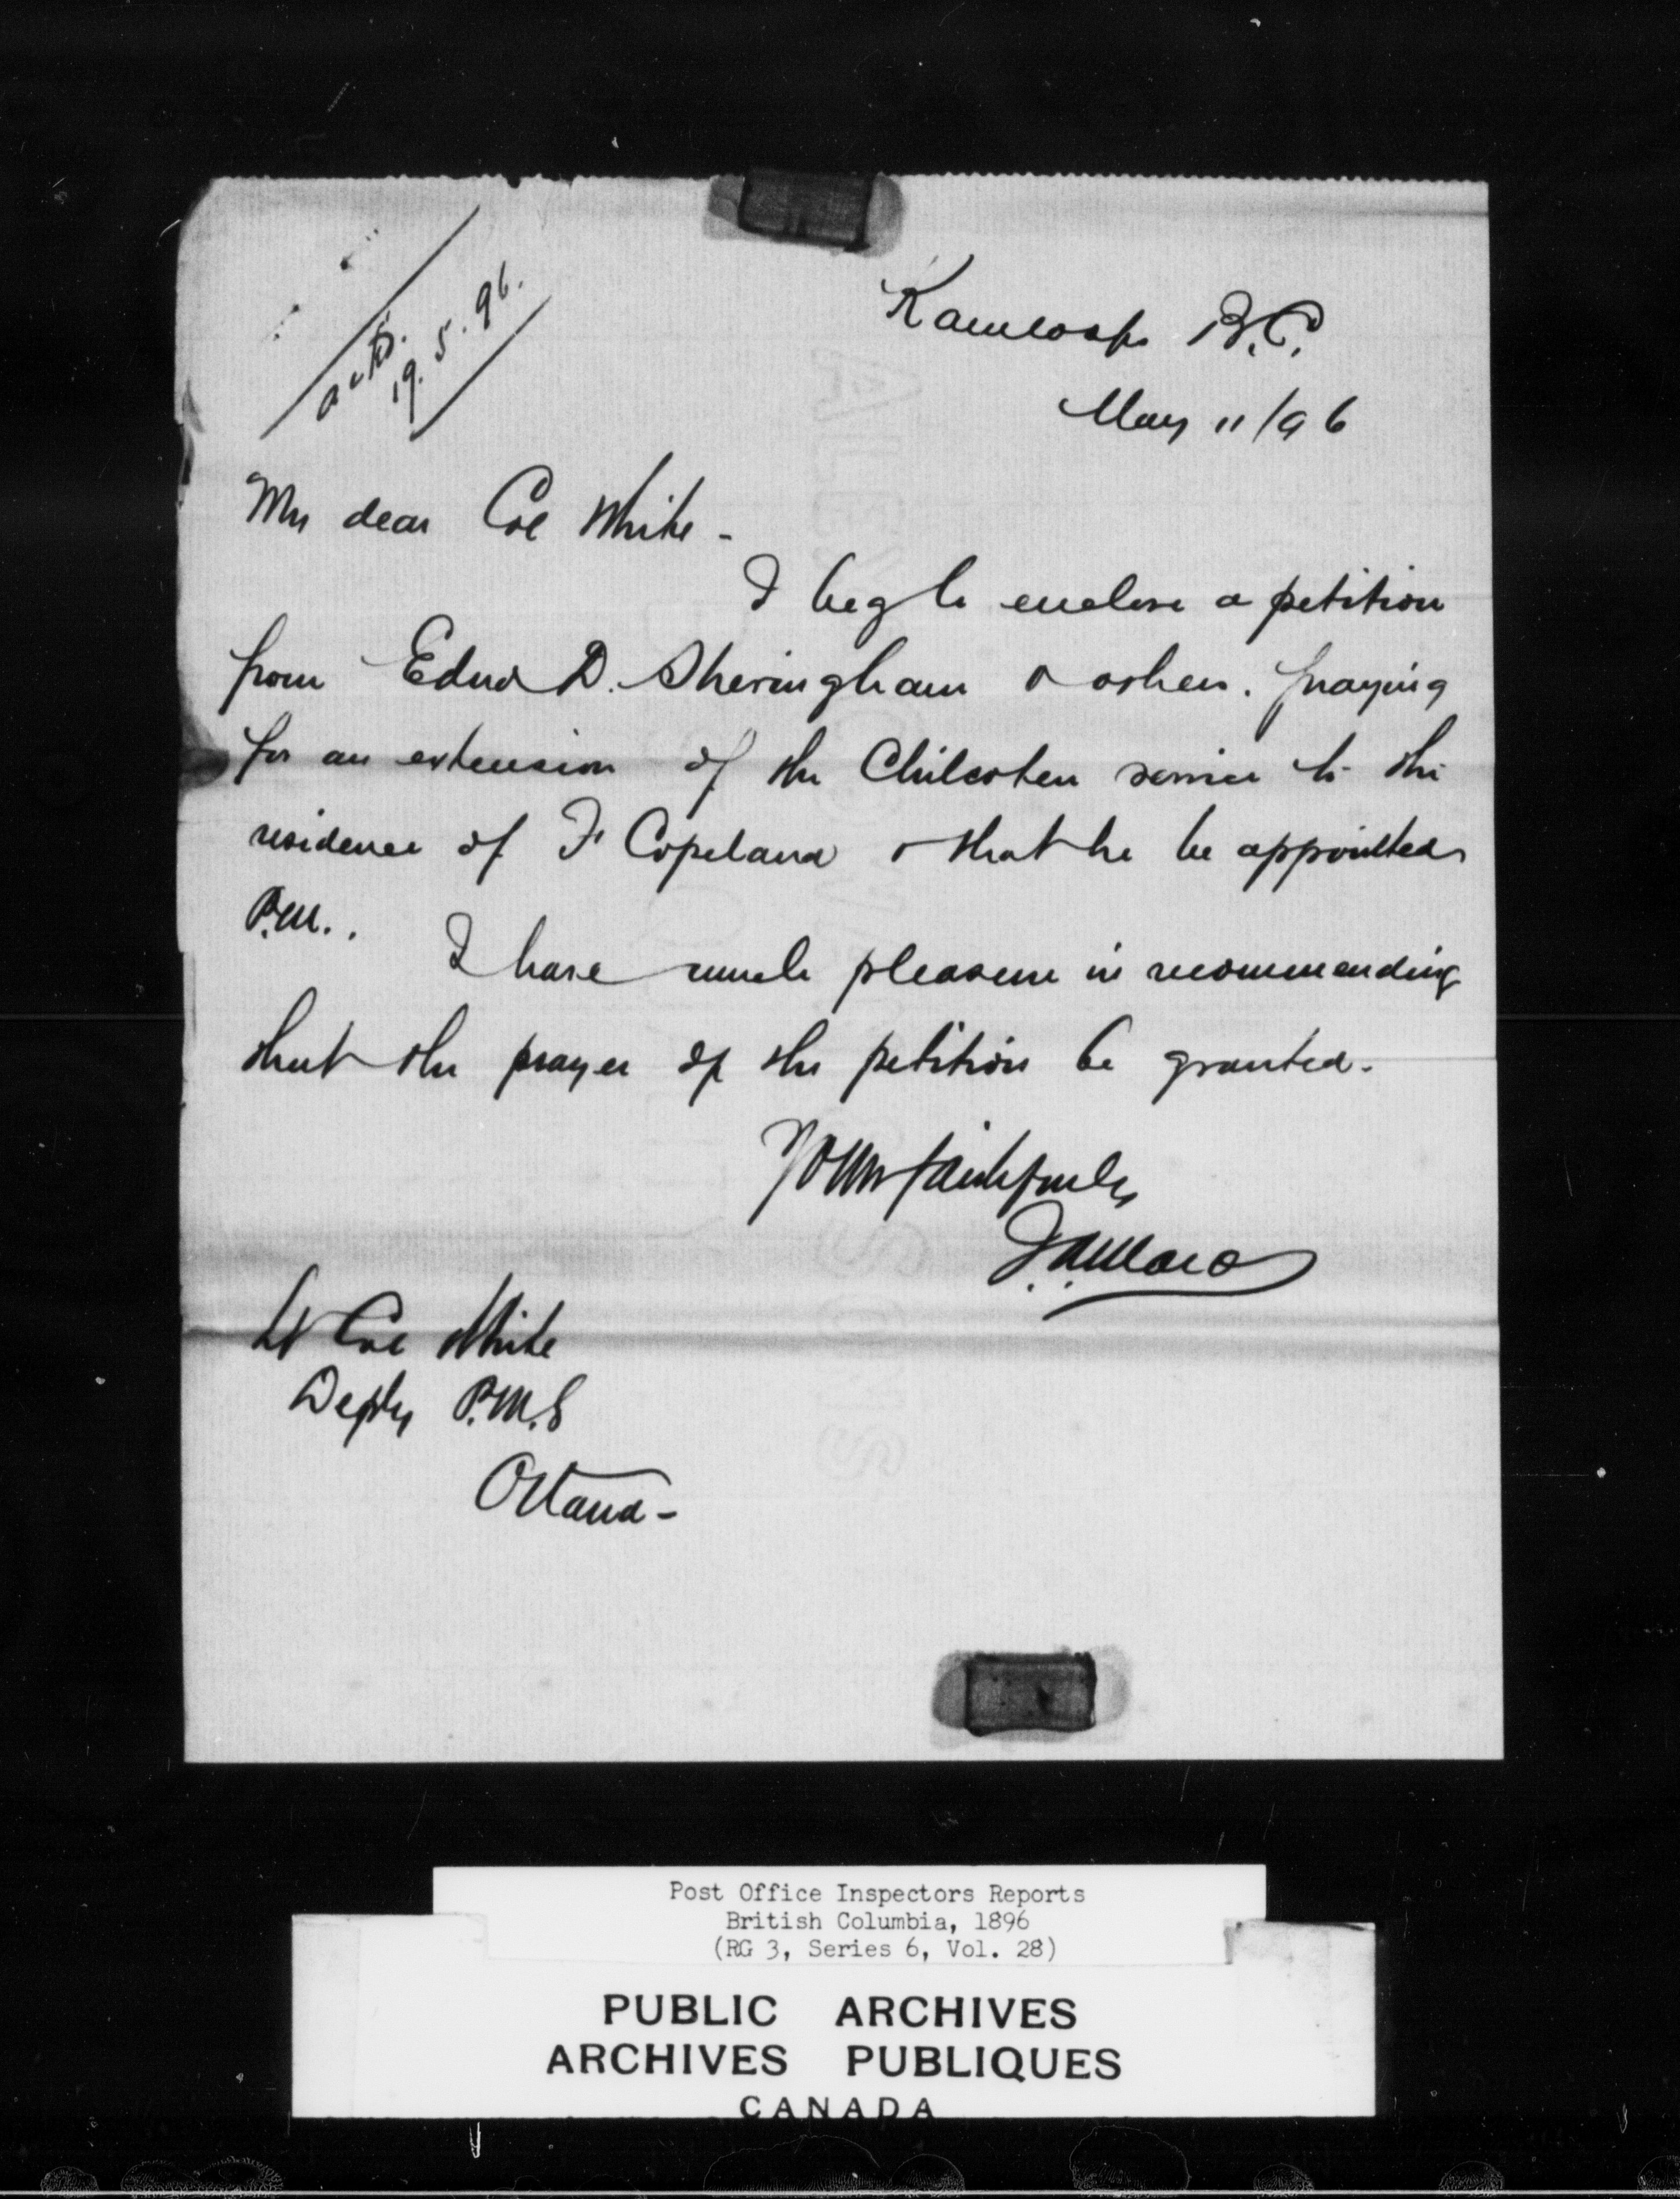 ackd.
19.5.96.
Kamloops B.C.
May 11/96
My dear Col White -
I beg to enclose a petition
from Edwd D. Sheringham & others. praying
for an extension of the Chilcoten service to the
residence of F Copeland & that he be appointed
P.M..
I have much pleasure in recommending
that the prayer of the petition be granted.
Yours faithfully
J.A. Mara
Lt Col White
Depty P.M.G
Ottawa -
Post Office Inspectors Reports
British Columbia, 1896
(RG 3, Series 6, Vol. 28)
PUBLIC ARCHIVES
ARCHIVES PUBLIQUES
CANADA